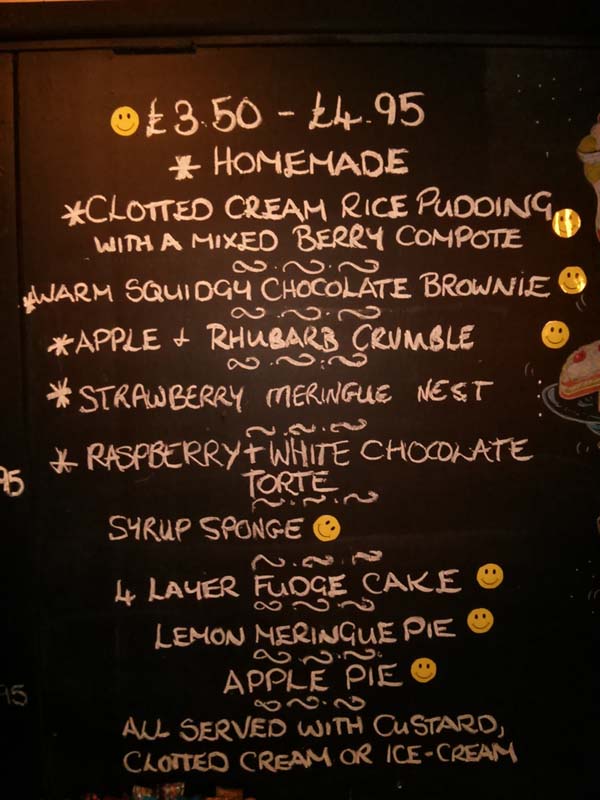 £3.50 - £4.95
* HOMEMADE
*CLOTTED CREAM RICE PUDDING
WITH A MIXED BERRY COMPOTE
*WARM SQUIDGY CHOCOLATE BROWNIE
*APPLE + RHUBARB CRUMBLE
*STRAWBERRY MERINGUE NEST
* RASPBERRY + WHITE CHOCOLATE
TORTE
95
SYRUP SPONGE
4 LAYER FUDGE CAKE
LEMON MERINGUE PIE
APPLE PIE
95
ALL SERVED WITH CUSTARD,
CLOTTED CREAM OR ICE-CREAM